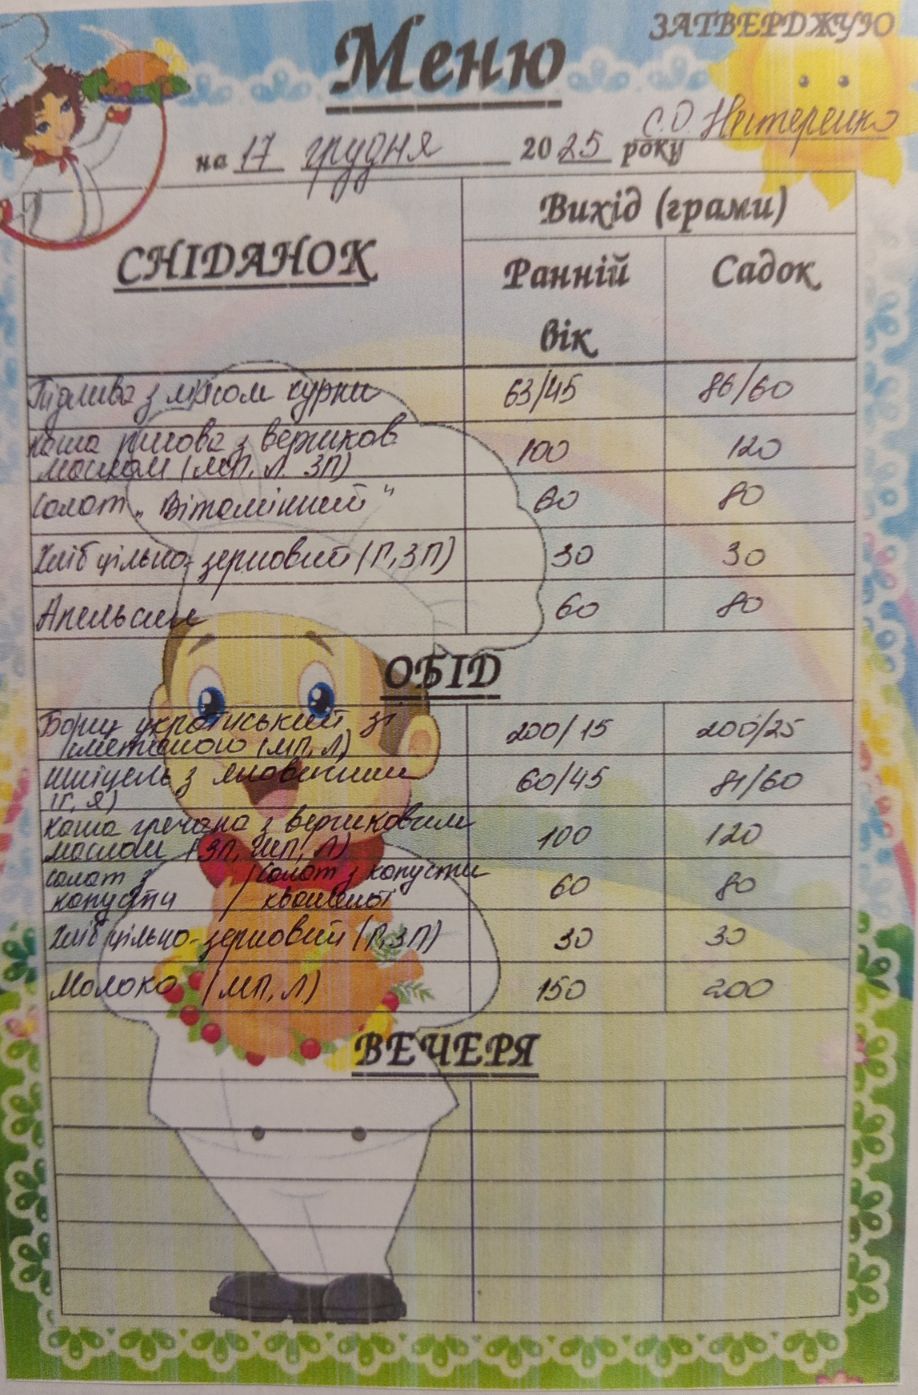 ЗАТВЕРДЖУЮ
Меню
С.О. Нестеренко
на 17 грудня 2025 року
СНІДАНОК
Вихід (грами)
Ранній вік
Садок
Підлива з м'ясом курки 63/45 86/60
Каша рисова з вершков
маслом (МП, Л, ЗП) 100 120
Салат „Вітамінний" 60 80
Хліб цільно-зерновий (Г, ЗП) 30 30
Апельсин 60 80
ОБІД
Борщ український зі
сметаною (МП, Л) 200/15 200/25
шніцель з яловичини
(Г, Я) 60/45 81/60
Каша гречана з вершковим
маслом (ЗП, МП, Л) 100 120
Салат з / Салат з капусти
капусти / квашеної 60 80
Хліб цільно-зерновий (Г, ЗП) 30 30
Молоко (МП, Л) 150 200
ВЕЧЕРЯ